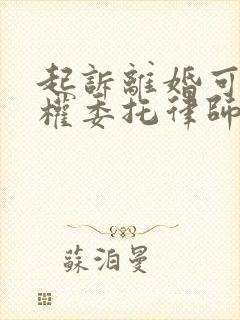 起訴離婚可
權委托律師
蘇泊曼